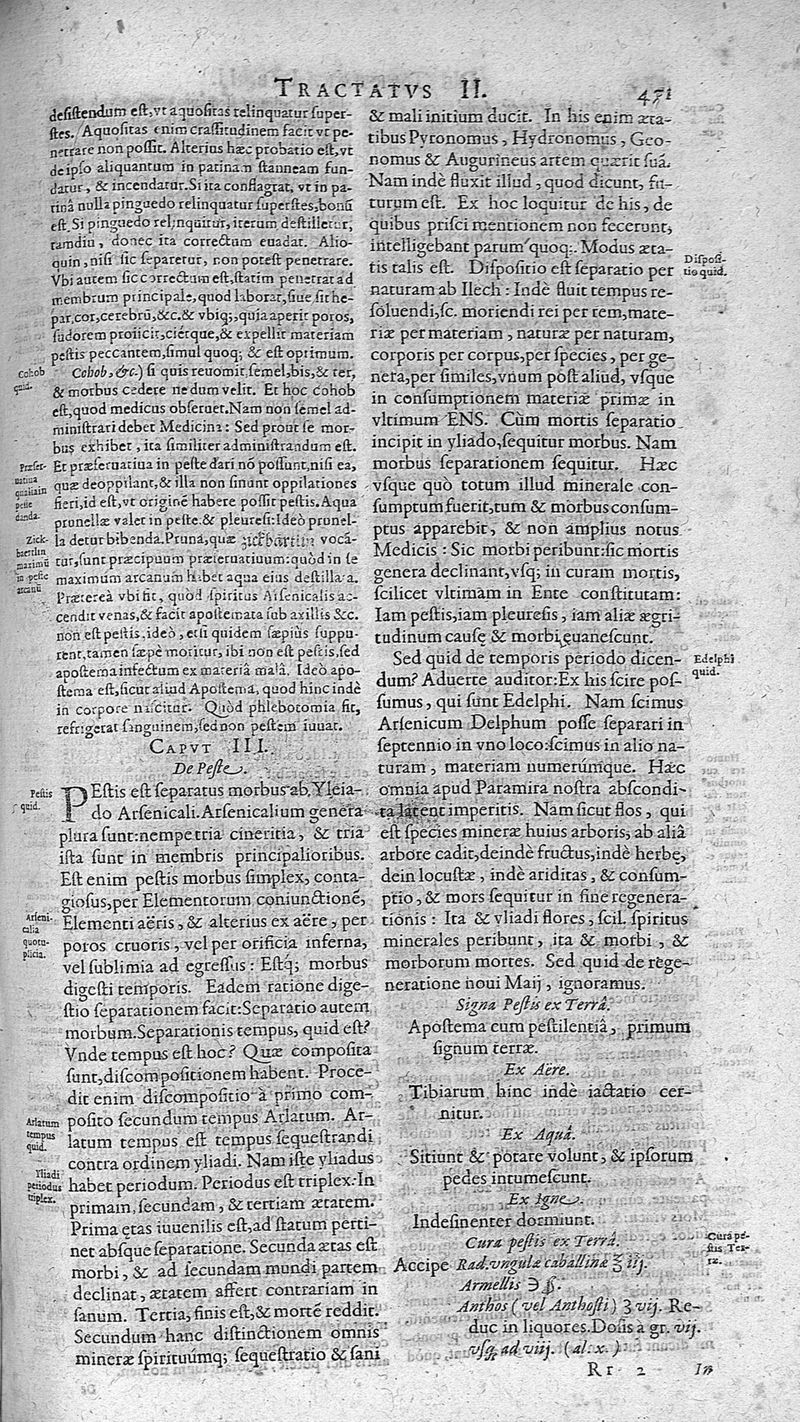 TRACTATVS II. 471
desistendum est, vt aquositas relinquatur super-
stes. Aquositas enim crassitudinem facit vt pe-
netrare non possit. Alterius hæc probatio est, vt
de ipso aliquantum in patinam stanneam fun-
datur, & incendatur. Si ita conflagrat, vt in pa-
tinâ nulla pinguedo relinquatur superstes, bonū
est. Si pinguedo relinquitur, iterum destilletur,
tamdiu, donec ita correctum euadat. Alio-
quin, nisi sic separetur, non potest penetrare.
Vbi autem sic correctum est, statim penetrat ad
membrum principale, quod laborat, siue sit he-
par, cor, cerebrū, &c. & vbiq;, quia aperit poros,
sudorem proiicit, ciétque, & expellit materiam
pestis peccantem, simul quoq; & est optimum.
Cohob quid.
Cohob, &c.) si quis reuomit, semel, bis, & ter,
& morbus cedere nedum velit. Et hoc cohob
est, quod medicus obseruet. Nam non semel ad-
ministrari debet Medicina: Sed prout se mor-
bus exhibet, ita similiter administrandum est.
Præser-
uatiua
qualiain
peste
danda.
Et præseruatiua in peste dari nō possunt, nisi ea,
quæ deoppilant, & illa non sinunt oppilationes
fieri, id est, vt originē habere possit pestis. Aqua
prunellæ valet in peste. & pleuresi: Ideò prunel-
Zick-
baertlin
maximū
in peste
arcanū
la detur bibenda. Pruna, quæ zickbärtlin vocā-
tur, sunt præcipuum præseruatiuum: quòd in se
maximum arcanum habet aqua eius destillata.
Præterea vbi fit, quòd spiritus Arsenicalis ac-
cendit venas, & facit apostemata sub axillis &c.
non est pestis, ideò, etsi quidem sæpiùs suppu-
rent, tamen sæpè moritur, ibi non est pestis, sed
apostema infectum ex materiâ malâ. Ideò apo-
stema est, sicut aliud Apostema, quod hinc indè
in corpore nascitur. Quòd phlebotomia fit,
refrigerat sanguinem, sed non pestem iuuat.
CAPVT III.
De Peste.
Pestis
quid.
PEstis est separatus morbus ab Yleia-
do Arsenicali. Arsenicalium genera
plura sunt: nempe tria cineritia, & tria
ista sunt in membris principalioribus.
Est enim pestis morbus simplex, conta-
giosus, per Elementorum coniunctionē,
Arseni-
calia
quotu-
plicia.
Elementi aëris, & alterius ex aëre, per
poros cruoris, vel per orificia inferna,
vel sublimia ad egressus: Estq́; morbus
digesti temporis. Eadem ratione dige-
stio separationem facit: Separatio autem
morbum. Separationis tempus, quid est?
Vnde tempus est hoc? Quæ composita
sunt, discompositionem habent. Proce-
dit enim discompositio à primo com-
Arlatum
tempus
quid.
posito secundum tempus Arlatum. Ar-
latum tempus est tempus sequestrandi
contra ordinem yliadi. Nam iste yliadus
Yliadi
periodus
triplex.
habet periodum. Periodus est triplex: In
primam, secundam, & tertiam ætatem.
Prima ętas iuuenilis est, ad statum perti-
net absque separatione. Secunda ætas est
morbi, & ad secundam mundi partem
declinat, ætatem affert contrariam in
sanum. Tertia, finis est, & mortē reddit.
Secundum hanc distinctionem omnis
mineræ spirituúmq; sequestratio & sani
& mali initium ducit. In his enim æta-
tibus Pyronomus, Hydronomus, Geo-
nomus & Augurineus artem quærit suā.
Nam indè fluxit illud, quod dicunt, fu-
turum est. Ex hoc loquitur de his, de
quibus prisci mentionem non fecerunt,
intelligebant parum quoq;. Modus æta-
Disposi-
tio quid.
tis talis est. Dispositio est separatio per
naturam ab Ilech: Indè fluit tempus re-
soluendi, sc. moriendi rei per rem, mate-
riæ per materiam, naturæ per naturam,
corporis per corpus, per species, per ge-
nera, per similes, vnum pòst aliud, vsque
in consumptionem materiæ primæ in
vltimum ENS. Cùm mortis separatio
incipit in yliado, sequitur morbus. Nam
morbus separationem sequitur. Hæc
vsque quò totum illud minerale con-
sumptum fuerit, tum & morbus consum-
ptus apparebit, & non amplius notus
Medicis: Sic morbi peribunt: sic mortis
genera declinant, vsq; in curam mortis,
scilicet vltimam in Ente constitutam:
Iam pestis, iam pleuresis, iam aliæ ægri-
tudinum causę & morbi euanescunt.
Edelphi
quid.
Sed quid de temporis periodo dicen-
dum? Aduerte auditor: Ex his scire pos-
sumus, qui sunt Edelphi. Nam scimus
Arsenicum Delphum posse separari in
septennio in vno loco: scimus in alio na-
turam, materiam numerúmque. Hæc
omnia apud Paramira nostra abscondi-
ta latent imperitis. Nam sicut flos, qui
est species mineræ huius arboris, ab aliâ
arbore cadit, deindè fructus, indè herbę,
dein locustæ, indè ariditas, & consum-
ptio, & mors sequitur in fine regenera-
tionis: Ita & yliadi flores, scil. spiritus
minerales peribunt, ita & morbi, &
morborum mortes. Sed quid de rege-
neratione noui Maij, ignoramus.
Signa Pestis ex Terrâ.
Apostema cum pestilentiâ, primum
signum terræ.
Ex Aëre.
Tibiarum hinc indè iactatio cer-
nitur.
Ex Aquâ.
Sitiunt & potare volunt, & ipsorum
pedes intumescunt.
Ex igne.
Indesinenter dormiunt.
Cura pestis ex Terrâ.
Cura pe-
stis Ter-
ræ.
Accipe Rad. vngulæ caballinæ ʒ iij.
Armellis ℈ ß.
Anthos (vel Anthosti) ʒ vij. Re-
duc in liquores. Dosis à gr. vij.
vsq; ad viij. (al. x.)
Rr 2 In